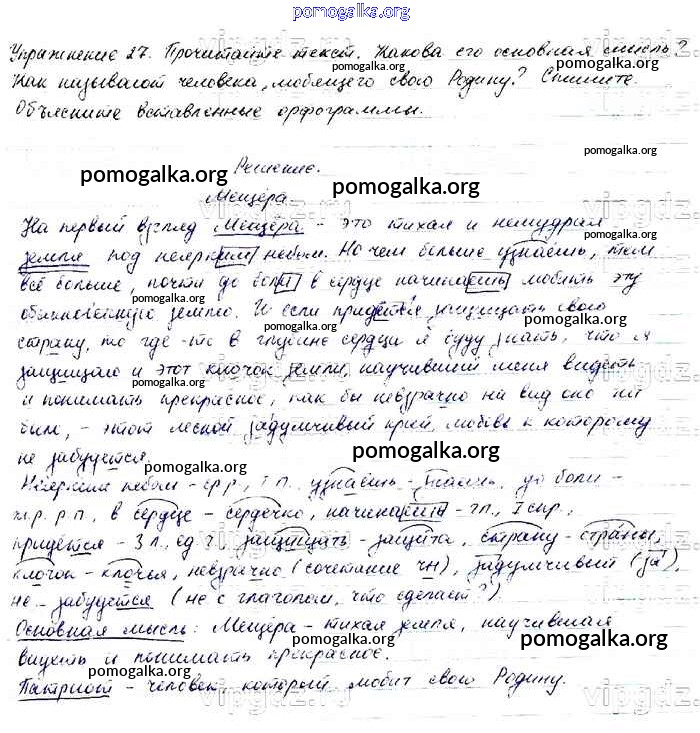 pomogalka.org
Упражнение 27. Прочитайте текст. Какова его основная мысль?
Как называют человека, любящего свою Родину? Спишите.
Объясните вставленные орфограммы.
pomogalka.org
Решение.
Мещёра.
На первый взгляд Мещёра - это тихая и немудрая
земля под неярким небом. Но чем больше узнаёшь, тем
всё больше, почти до боли в сердце начинаешь любить эту
обыкновенную землю. И если придётся защищать свою
страну, то где-то в глубине сердца я буду знать, что я
защищаю и этот клочок земли, научивший меня видеть
и понимать прекрасное, как бы невзрачно на вид оно ни
был, - этот лесной задумчивый край, любовь к которому
не забудется.
Неярким небом - ср.р., Т.п., узнаёшь - знать, до боли -
ж.р. р.п., в сердце - сердечко, начинаешь - гл., I спр.,
придётся - 3 л., ед.ч., защищать - защита, страну - страны,
клочок - клочья, невзрачно (сочетание чн), задумчивый (за),
не забудется (не с глаголом, что сделает?)
Основная мысль: Мещёра - тихая земля, научившая
видеть и понимать прекрасное.
Патриот - человек, который любит свою Родину.